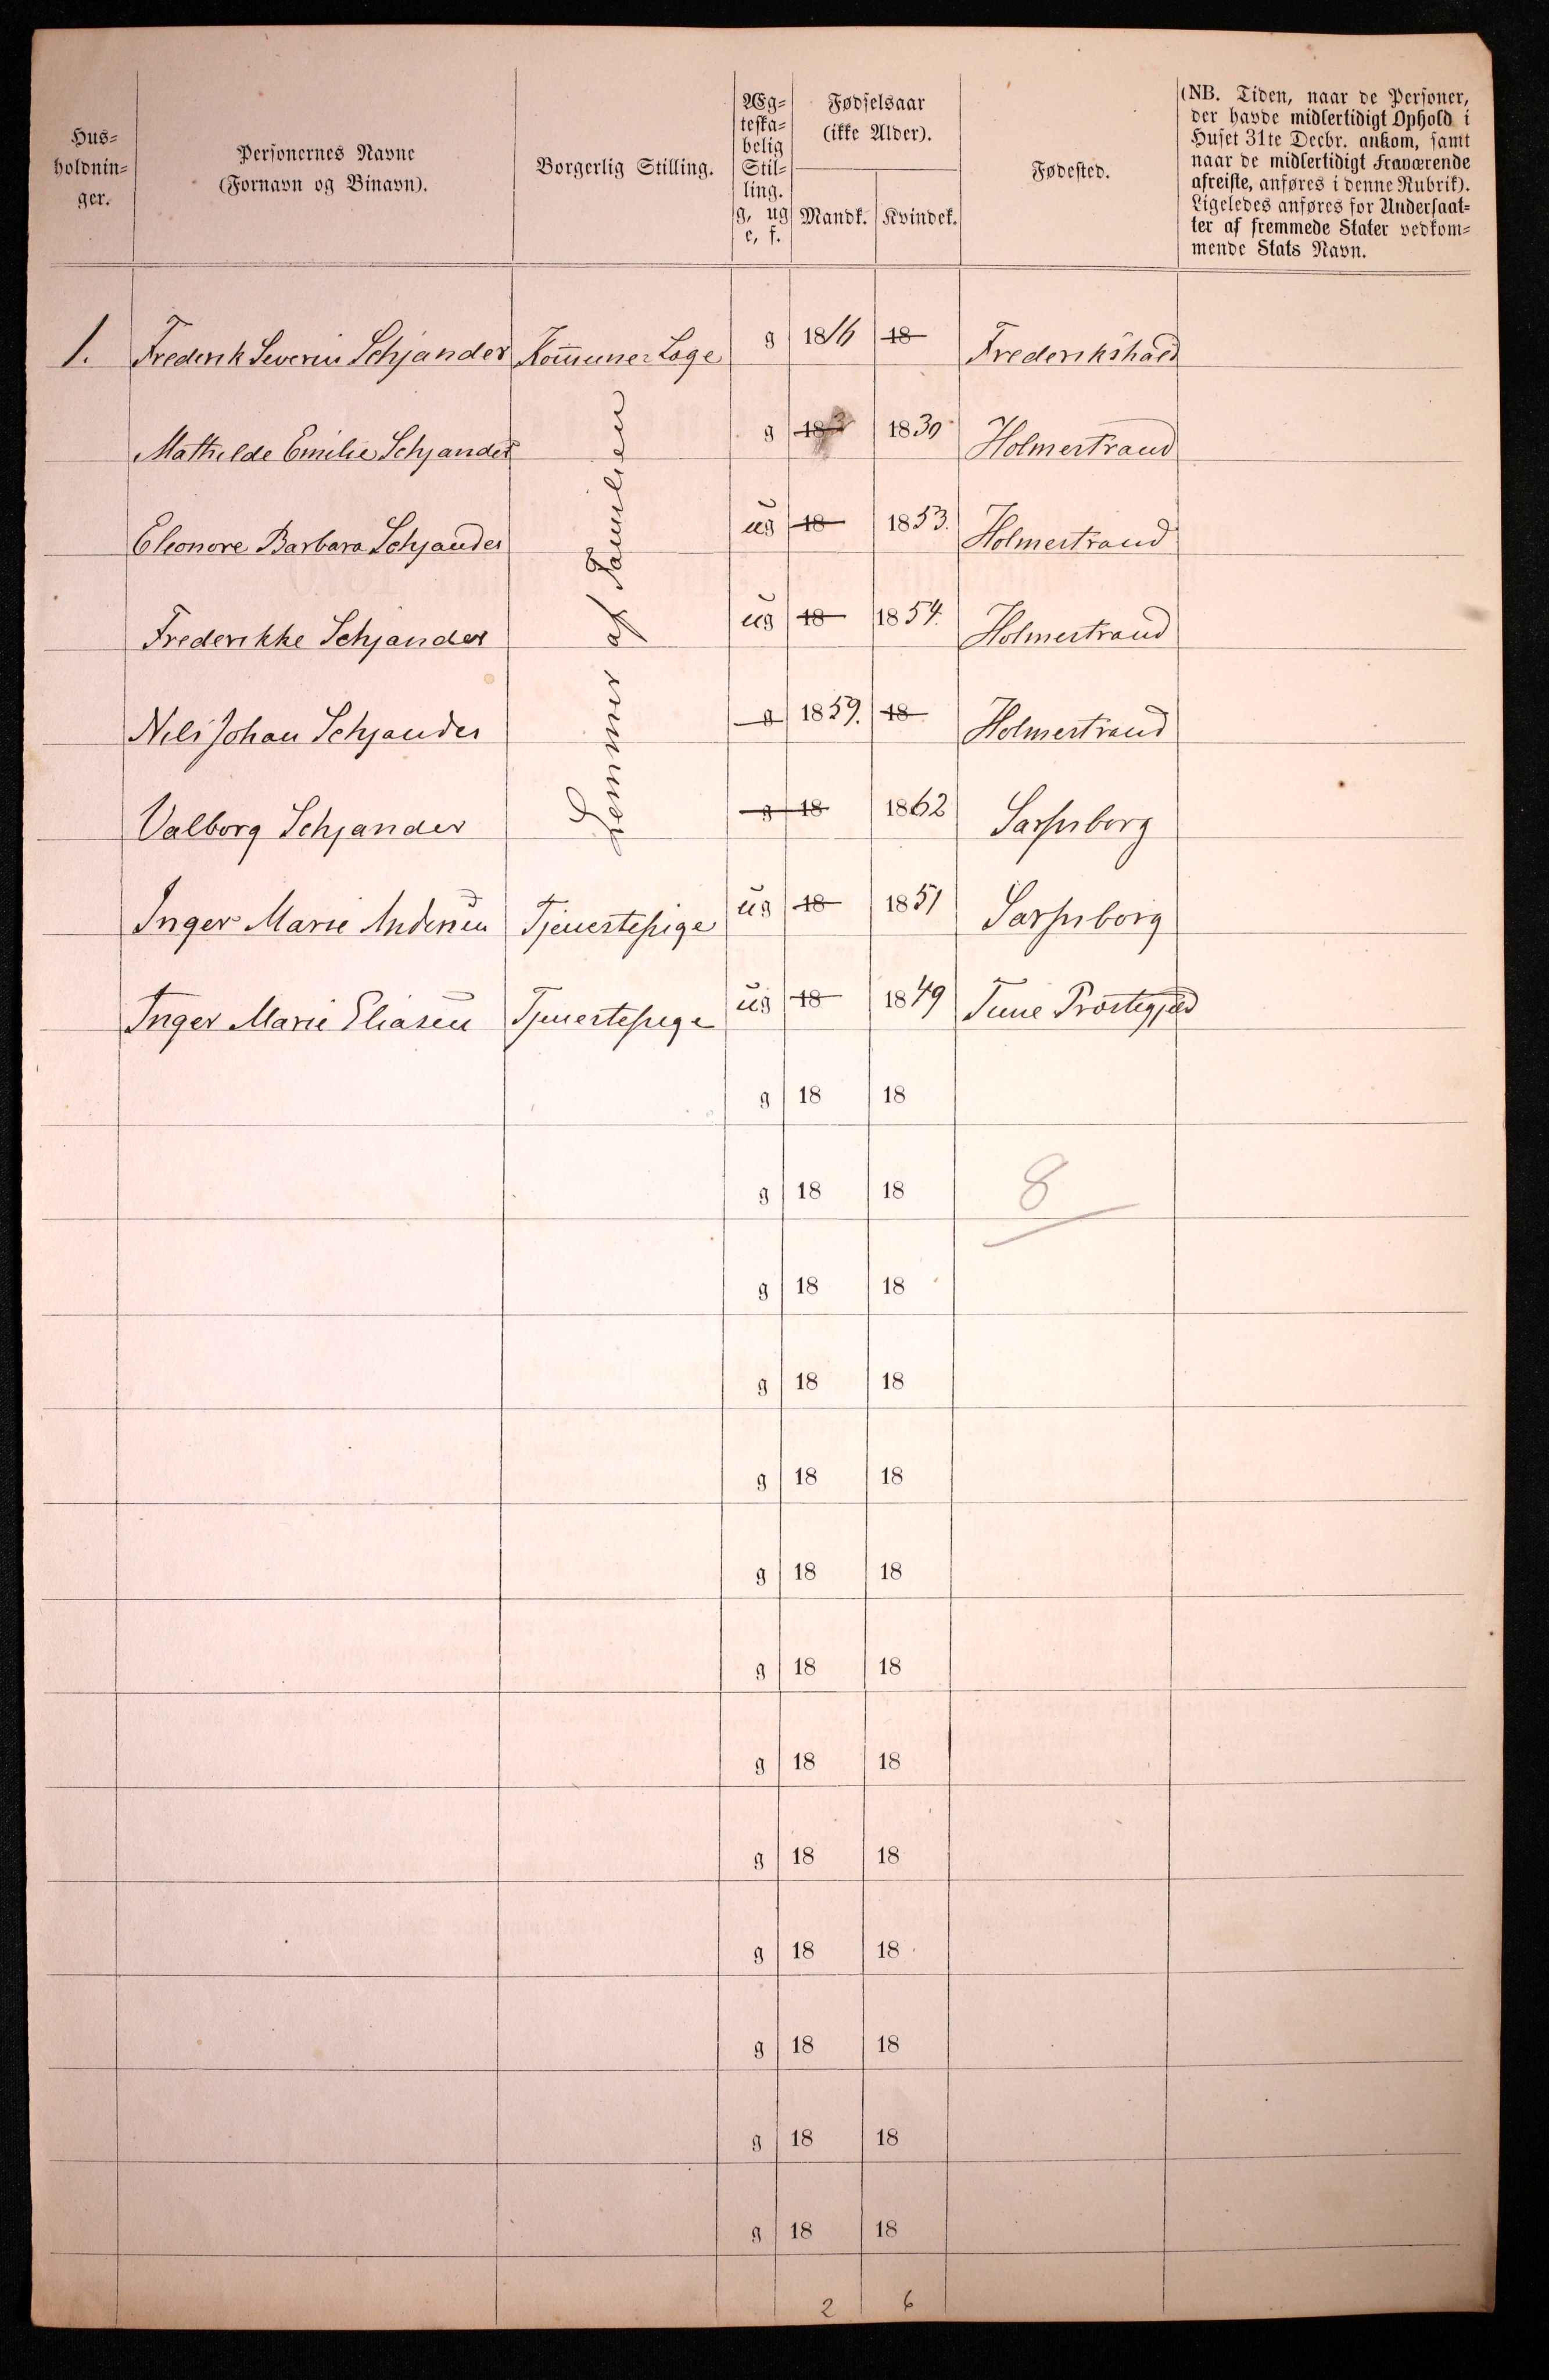 Hus-
holdnin-
ger.
Personernes Navne
(Fornavn og Binavn).
Borgerlig Stilling.
Æg-
teska-
belig
Stil-
ling.
g, ug
e, f.
Fødselsaar
(ikke Alder).
Mandk. Kvindek.
Fødested.
(NB. Tiden, naar de Personer,
der havde midlertidigt Ophold i
Huset 31te Decbr. ankom, samt
naar de midlertidigt Fraværende
afreiste, anføres i denne Rubrik).
Ligeledes anføres for Undersaat-
ter af fremmede Stater vedkom-
mende Stats Navn.
1. Frederik Severin Schjander Kom̅une-Læge g 1816 18 Frederikshald
Mathilde Emilie Schjander g 183 1830 Holmestrand
Eleonore Barbara Schjander ug 18 1853. Holmestrand
Frederikke Schjander ug 18 1854. Holmestrand
Nils Johan Schjander g 1859. 18 Holmestrand
Valborg Schjander g 18 1862 Sarpsborg
Lemmer af Familien
Inger Marie Andersen Tjenestepige ug 18 1851 Sarpsborg
Inger Marie Eliasen Tjenestepige ug 18 1849 Tune Præstegjeld
g 18 18
g 18 18 8
g 18 18
g 18 18
g 18 18
g 18 18
g 18 18
g 18 18
g 18 18
g 18 18
g 18 18
g 18 18
g 18 18
2 6